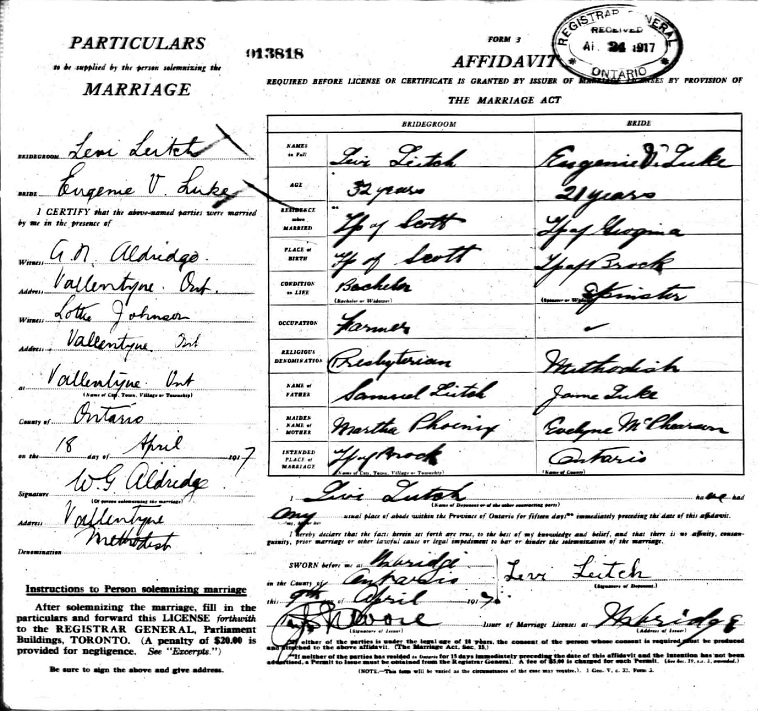 PARTICULARS
to be supplied by the person solemnizing the
MARRIAGE
BRIDEGROOM Levi Leitch
BRIDE Eugenie V. Luke
I CERTIFY that the above-named parties were married
by me in the presence of
Witness A. N. Aldridge
Address Vallentyne Ont.
Witness Lottie Johnson
Address Vallentyne Ont
at Vallentyne Ont
(Name of City, Town, Village or Township)
County of Ontario
on the 18 day of April 1917
W G Aldridge
Signature
(Of person solemnizing the marriage)
Address Vallentyne
Methodist
Denomination
Instructions to Person solemnizing marriage
After solemnizing the marriage, fill in the
particulars and forward this LICENSE forthwith
to the REGISTRAR GENERAL, Parliament
Buildings, TORONTO. (A penalty of $20.00 is
provided for negligence. See "Excerpts.")
Be sure to sign the above and give address.
013818
FORM 3
AFFIDAVIT
REGISTRAR GENERAL
RECEIVED
24 1917
ONTARIO
REQUIRED BEFORE LICENSE OR CERTIFICATE IS GRANTED BY ISSUER OF MARRIAGE LICENSES BY PROVISION OF
THE MARRIAGE ACT
BRIDEGROOM BRIDE
NAMES in Full Levi Leitch Eugenie V. Luke
AGE 32 years 21 years
RESIDENCE when MARRIED Tp of Scott Tp of Georgina
PLACE of BIRTH Tp of Scott Tp of Brock
CONDITION in LIFE Bachelor Spinster
(Bachelor or Widower) (Spinster or Widow)
OCCUPATION Farmer
RELIGIOUS DENOMINATION Presbyterian Methodish
NAME of FATHER Samuel Leitch Luke
MAIDEN NAME of MOTHER Martha Phoenix Evelyne McPhearson
INTENDED PLACE of MARRIAGE Tp of Brock Ontario
(Name of City, Town, Village or Township) (Name of County)
I Levi Leitch have had
(Name of Deponent or of the other contracting party)
my usual place of abode within the Province of Ontario for fifteen days immediately preceding the date of this affidavit.
I hereby declare that the facts herein set forth are true, to the best of my knowledge and belief, and that there is no affinity, consan-
guinity, prior marriage or other lawful cause or legal impediment to bar or hinder the solemnization of the marriage.
SWORN before me at Uxbridge
in the County of Ontario Levi Leitch
(Signature of Deponent)
this 9th day of April 1917
Moore Issuer of Marriage Licenses at Uxbridge
(Signature of Issuer) (Address of Issuer)
If either of the parties is under the legal age of 18 years, the consent of the person whose consent is required must be produced
and attached to the above affidavit. (The Marriage Act, Sec. 15.)
If neither of the parties has resided in Ontario for 15 days immediately preceding the date of this affidavit and the intention has not been
advertised, a Permit to Issue must be obtained from the Registrar General. A fee of $5.00 is charged for such Permit.
(NOTE.—This form will be varied as the circumstances of the case may require.) 1 Geo. V, c. 32. Form 3.